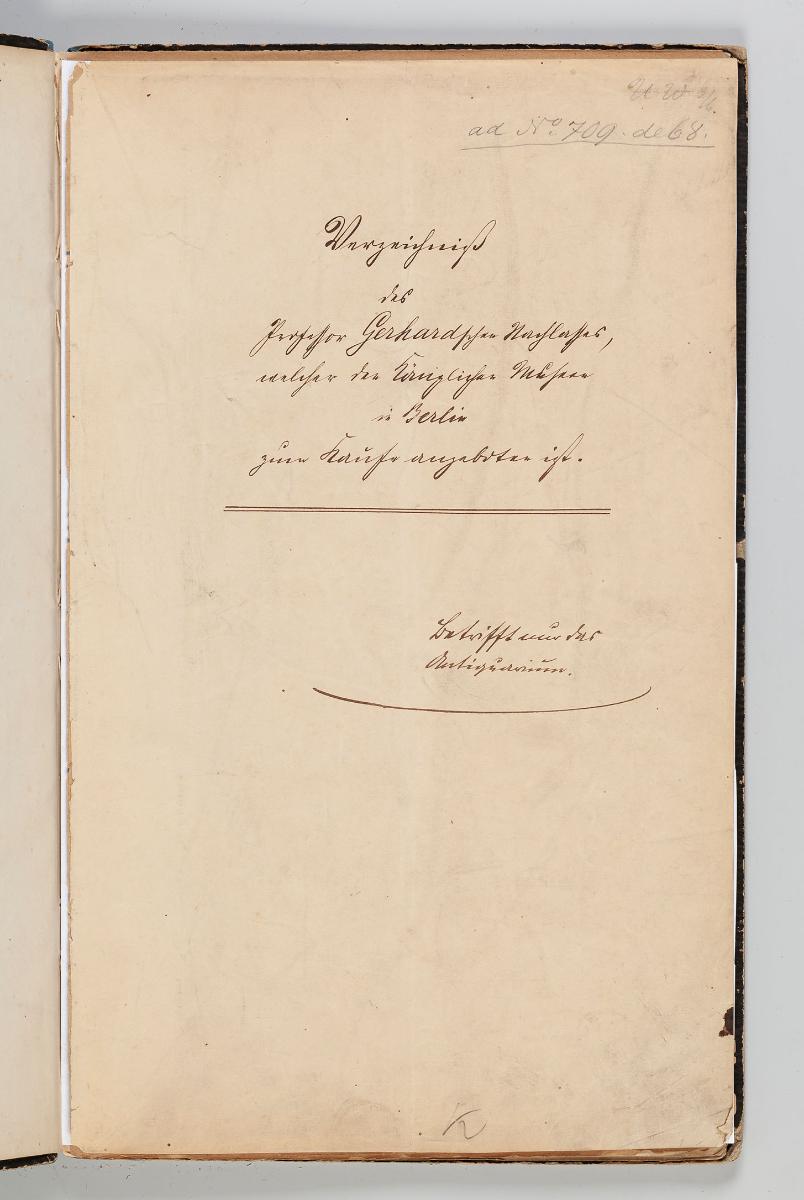 ad No. 709. de 68.
Verzeichniß
des
Professor Gerhardschen Nachlasses,
welcher den Königlichen Museen
in Berlin
zum Kaufe angeboten ist.
Betrifft nur das
Antiquarium.
K